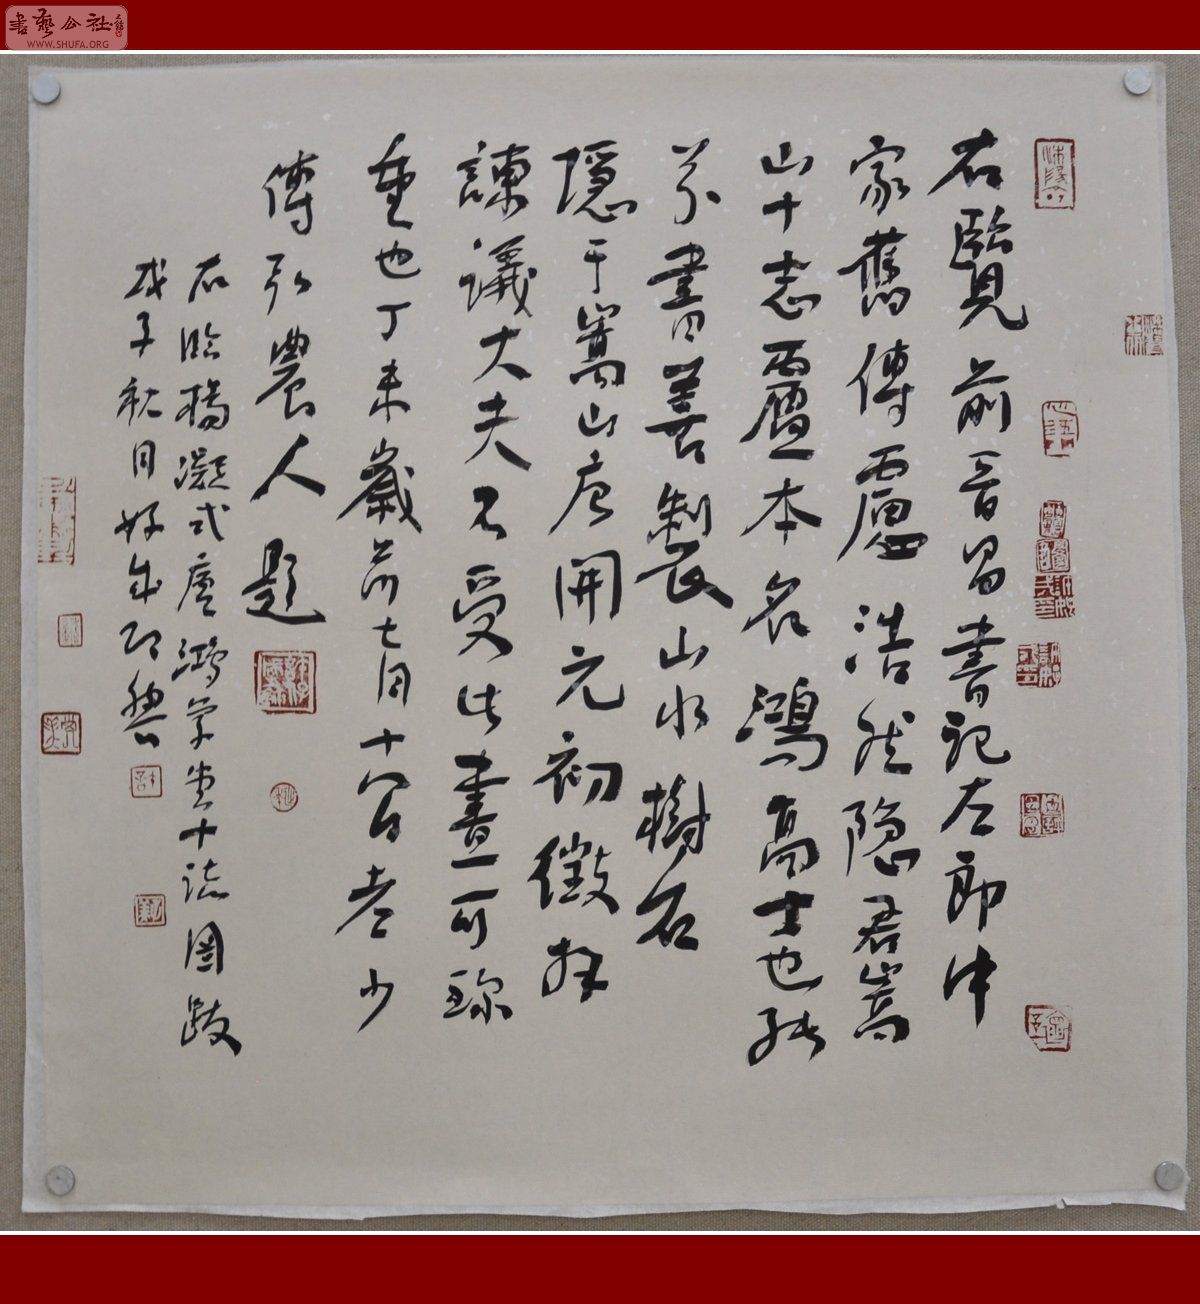 書藝公社
WWW.SHUFA.ORG
右覽前晉昌書記左郎中
家舊傳盧浩然隐君嵩
山十志盧本名鴻高士也能
八分書善製山水樹石
隱于嵩山唐開元初徵拜
諫議大夫不受此畫可珎
重也丁未歲前七月十八日老少
傅弘農人題
右臨楊凝式盧鴻草堂十志圖跋
戊子秋月